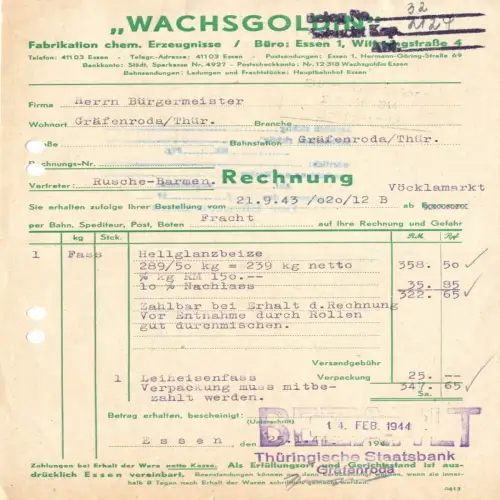 „WACHSGOLDIN"
32
2124
Fabrikation chem. Erzeugnisse / Büro: Essen 1, Wittringstraße 4
Telefon: 41103 Essen - Telegr.-Adresse: 41103 Essen - Postsendungen: Essen 1, Hermann-Göring-Straße 69
Bankkonto: Städt. Sparkasse Nr. 4927 - Postscheckkonto: Nr. 12318 Wachsgoldin Essen
Bahnsendungen: Ladungen und Frachtstücke: Hauptbahnhof Essen
Firma Herrn Bürgermeister
Wohnort Gräfenroda/Thür. Branche
Bahnstation Gräfenroda/Thür.
Rechnungs-Nr.
Vertreter: Rusche-Barmen. Rechnung Vöcklamarkt
Sie erhalten zufolge Ihrer Bestellung vom 21.9.43 /020/12 B ab
per Bahn, Spediteur, Post, Boten Fracht auf Ihre Rechnung und Gefahr
kg Stck.
1 Fass Hellglanzbeize
289/50 kg = 239 kg netto 358. 50
% kg RM 150.--
10 % Nachlass 35. 85
322. 65
Zahlbar bei Erhalt d.Rechnung
Vor Entnahme durch Rollen
gut durchmischen.
Versandgebühr
1 Leiheisenfass Verpackung 25. --
Verpackung muss mitbe- 347. 65
zahlt werden. Sa.
Betrag erhalten, bescheinigt:
(Unterschrift)
BEZAHLT
14. FEB. 1944
Essen, den
Thüringische Staatsbank
Gräfenroda
Zahlungen bei Erhalt der Ware netto Kasse. Als Erfüllungsort und Gerichtsstand ist aus-
drücklich Essen vereinbart.
8 Tagen nach Erhalt der Ware schriftlich